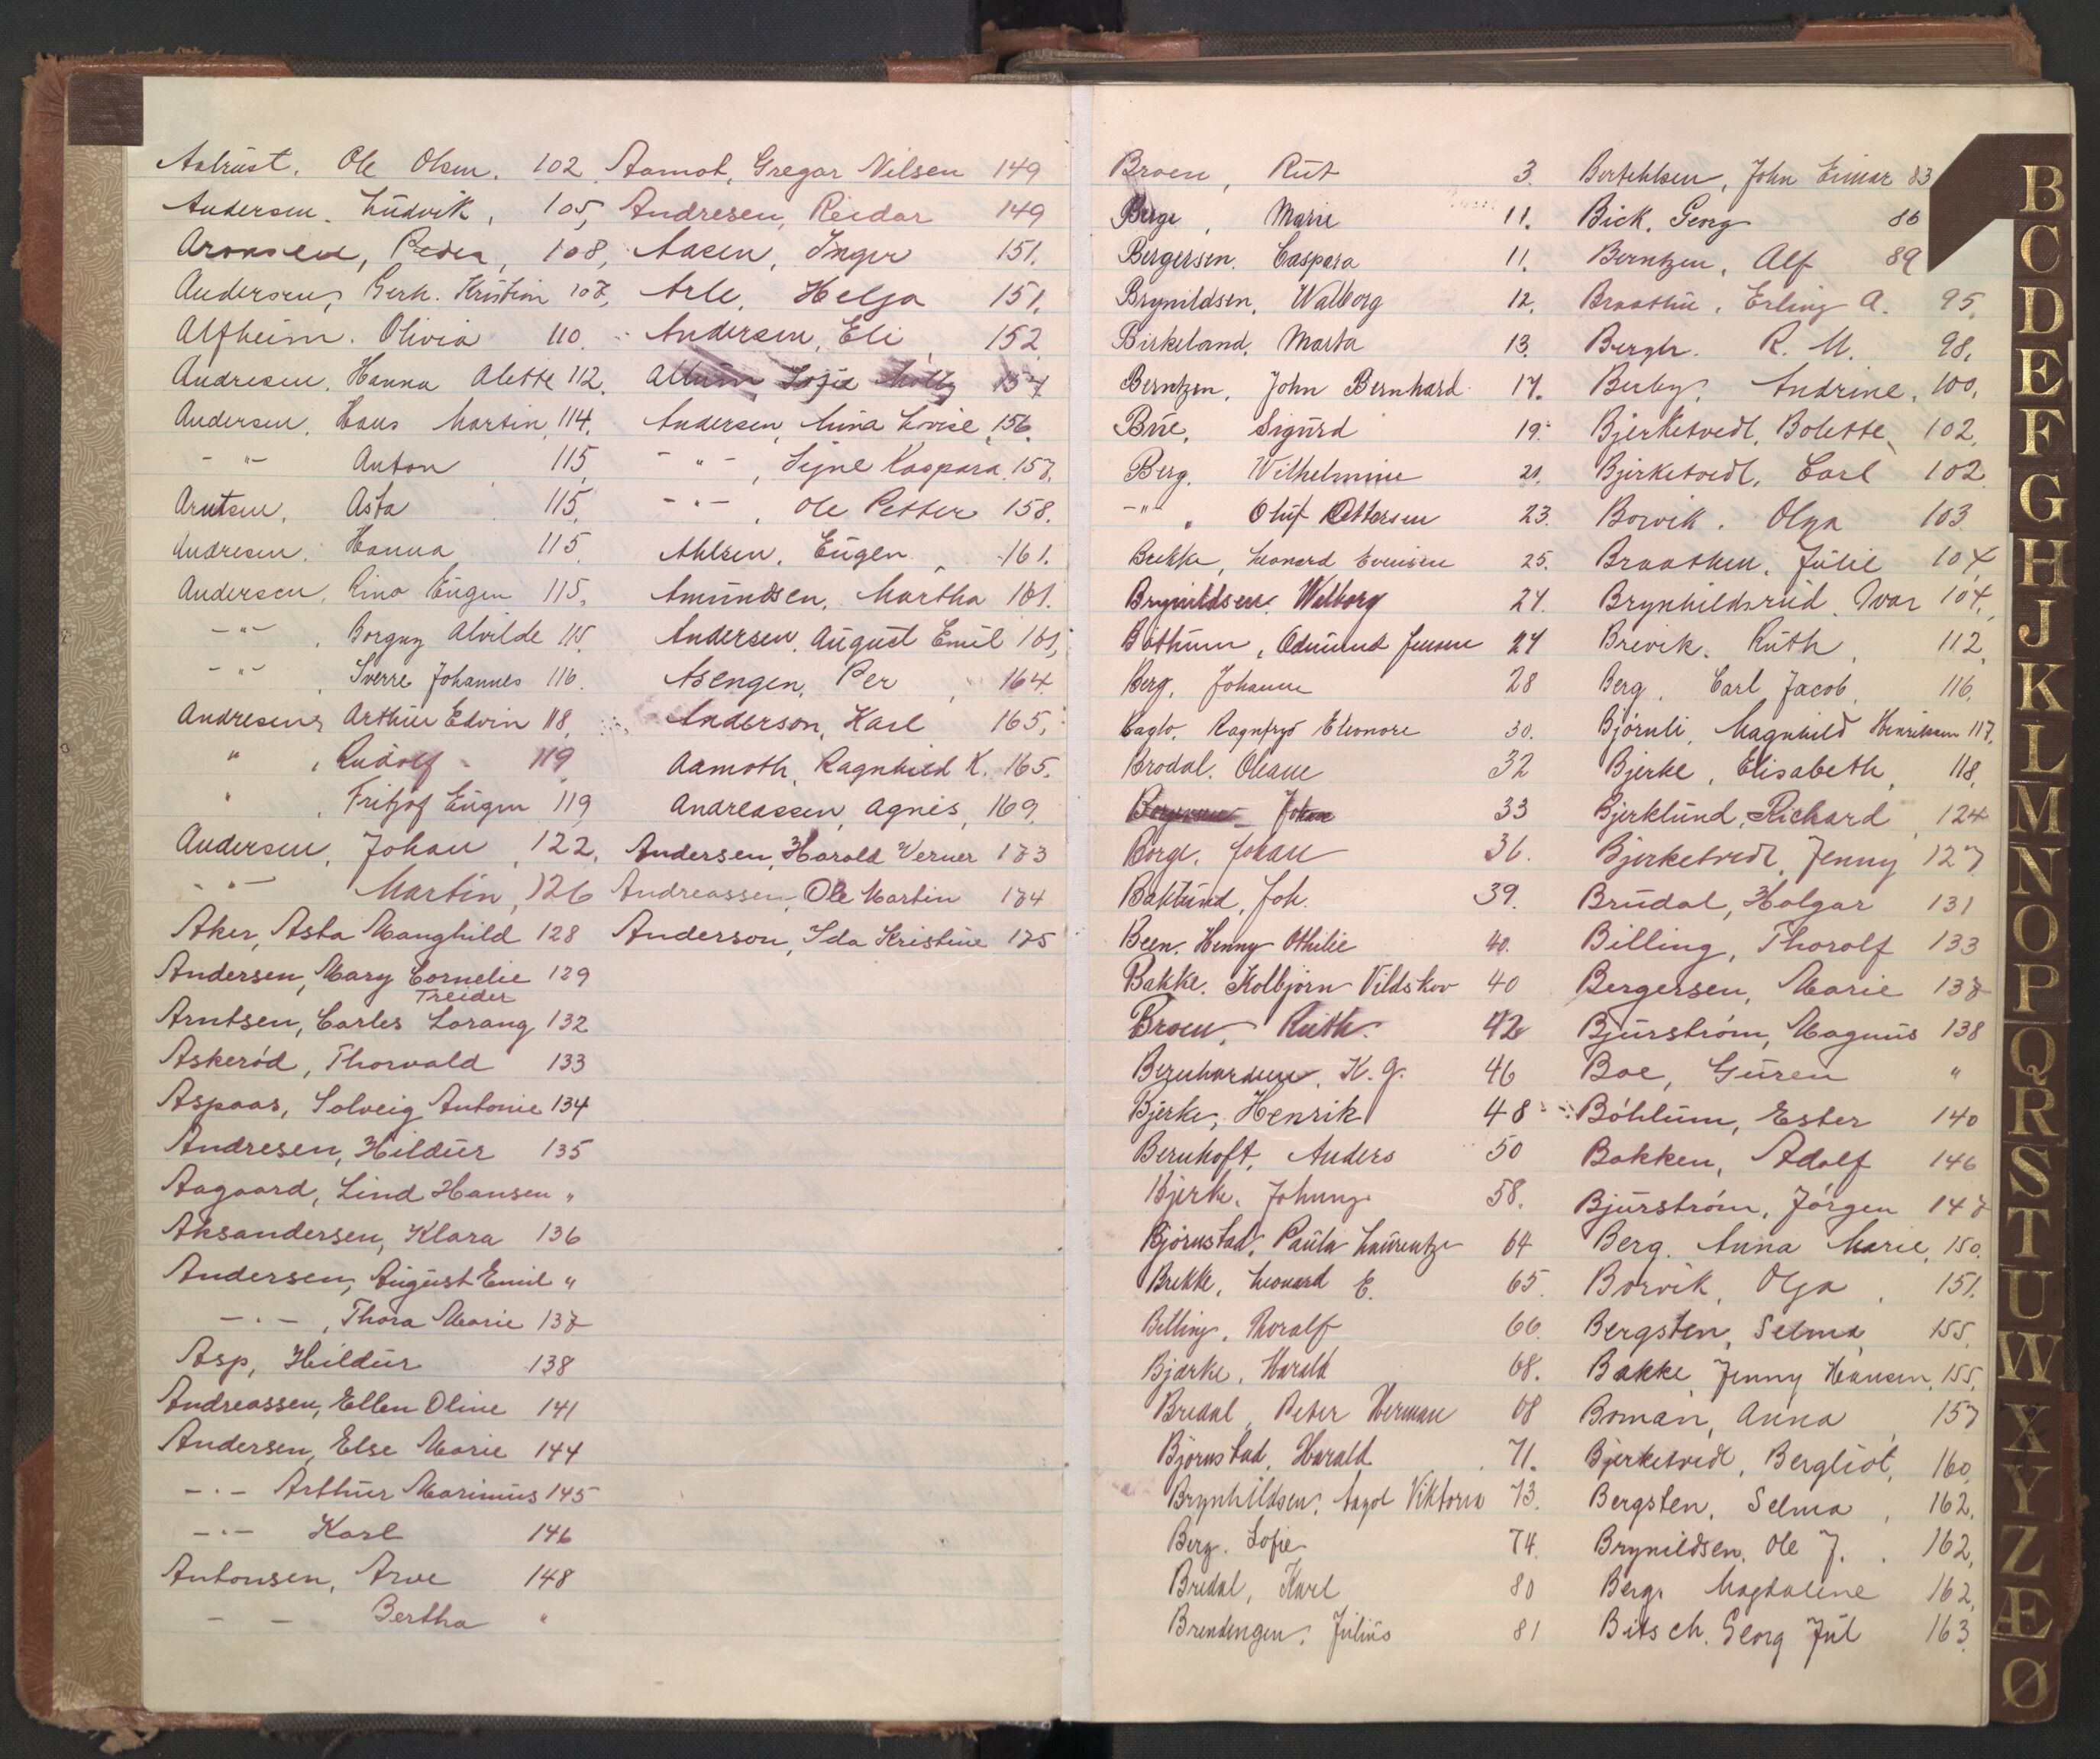 Ole Olsen. 102.
Andersen. Ludvik, 105,
Aronsen, Peder, 108,
Andersen, Kristine 107,
Alfheim. Olivia 110.
Andresen. Hanna Alette 112.
Andersen, Hans Martin, 114.
-"- Anton 115
Arntsen, Asta 115.
Andresen. Hanna 115.
Andersen, Eugen 115.
-"- , Borgny Alvilde 115.
-"- , Sverre Johannes 116.
Andresen, Arthur Edvin 118,
" , Rudolf 119
" , Fritjof Eugen 119
Andersen, Johan, 122.
-"- Martin, 126
Aker, Asta Manghild 128
Andersen, Mary Cornelie 129
Treider
Arntsen, Carles Lorang 132
Askeród, Thorvald 133
Aspaas, Solveig Antonie 134
Andresen, Hildur 135
Aagaard, Lind Hansen "
Aksandersen, Klara 136
Andersen, August Emil "
-"-, Thora Marie 137
Asp, Hildur 138
Andreassen, Ellen Oline 141
Andersen, Else Marie 144
-"- Arthur Marinius 145
-"- Karl 146
Antonsen, Arve 148
- - Bertha "
Aamot, Gregar Nilsen 149
Andresen, Reidar 149
Aasen, Inger 151.
Arle, Helga 151.
Andersen, Eli 152
Sofie Molly 154
Andersen, Mina Lovise, 156.
-"-, Signe Kaspara 157.
-"-, Ole Petter 158.
Ahlsen, Eugen 161.
Amundsen, Martha 161.
Andersen, August Emil 161,
Asengen, Per 164.
Anderson, Karl 165,
Aamoth, Ragnhild K. 165.
Andreassen, Agnes, 169.
Andersen, Harald Verner 173
Andreassen, Ole Martin 174
Anderson, Ida Kristine 175
Broen, Rut 3.
Berge, Marie 11.
Bergersen. Caspara 11.
Brynildsen, Walborg 12.
Birkeland. Marta 13.
Berntzen, John Bernhard 17.
Bue, Sigurd 19.
Berg. Wilhelmine 21.
-"-, Oluf Pettersen 23.
Brekke, Leonard Evensen 25.
Brynildsen. Walborg 24.
Böthum, Edmund Jensen 24
Berg, Johanne 28
Ragnfryd Eleonore 30.
Brodal. Oleane 32
Johan 33
Borge, Johan 36.
Baklund, Joh. 39.
Been. Henny Othilie 40.
Bakke. Kolbjørn Vildskov 40
Broen, Ruth. 42
Bernhardsen, K. G. 46
Bjerke, Henrik 48
Bernhoft, Anders 50
Bjerke, Johnny 58.
Bjørnstad, Paula Laurentze 64
Brekke, Leonard E. 65.
Billing, Thoralf 66.
Bjærke, Harald 68.
Bredal, Peter Herman 68
Björnstad, Harald 71.
Brynhildsen, Aagot Viktoria 73.
Berg. Sofie 74.
Bredal, Karl 80
Brendengen, Julius 81
John Einar 83
Bick. Georg 86
Berntzen, Alf 89
Braathen, Erling A. 95.
Bergh. R. M. 98.
Andrine, 100.
Bjerketvedt, Bolette, 102.
Bjerketvedt, Carl 102.
Borvik. Olga 103.
Braathen, Julie 104,
Brynhildsrud. Ivar 104,
Brevik. Ruth, 112.
Berg, Carl Jacob, 116.
Bjørnli, Magnhild Henriksen 117,
Bjerke, Elisabeth, 118,
Bjerklund, Richard, 124
Bjerketvedt, Jenny 127
Brudal, Holgar 131
Billing, Thorolf 133
Bergersen, Marie 137
Bjurström, Magnus 138
Boe, Guren "
Böhlum, Ester 140
Bakken, Adolf 146
Bjurström, Jörgen 147
Berg. Anna Marie, 150.
Borvik, Olga, 151.
Bergsten, Selma, 155.
Bakke, Jenny Hansen, 155.
Boman, Anna, 157
Bjerketvedt, Bergliot, 160,
Bergsten, Selma, 162,
Brynildsen, Ole J., 162,
Berg, Magdalene 162,
Bitsch. Georg Jul 163.
B
C
D
E
F
G
H
J
K
L
M
N
O
P
Q
R
S
T
U
W
X
Y
Z
Æ
Ø